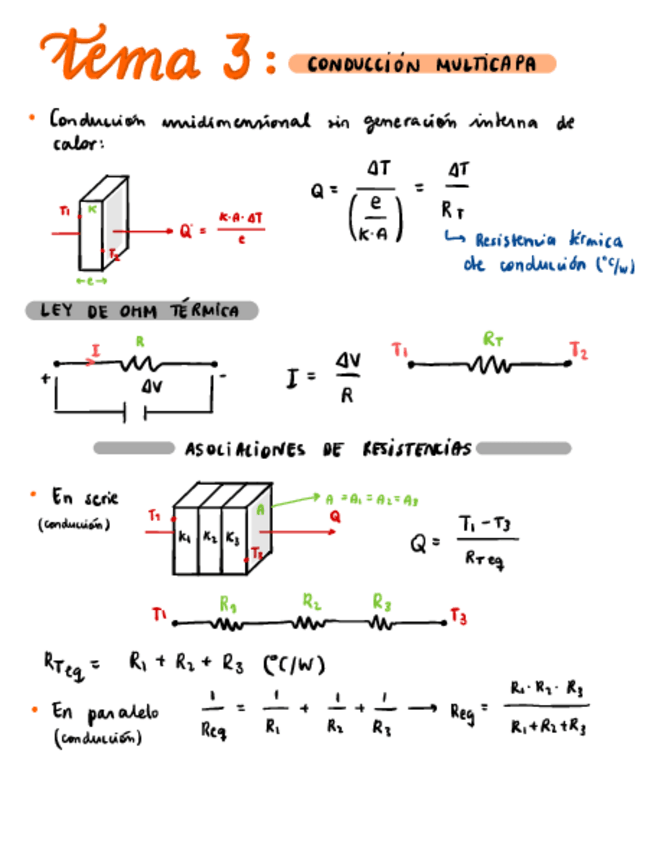 tema 3: CONDUCCIÓN MULTICAPA
• Conducción unidimensional sin generación interna de
calor:
T1 K T2 e
Q̇ = K·A·ΔT / e
Q = ΔT / (e / K·A) = ΔT / RT
↳ Resistencia térmica
de conducción (°C/W)
LEY DE OHM TÉRMICA
I R + ΔV -
I = ΔV / R
T1 RT T2
ASOCIACIONES DE RESISTENCIAS
• En serie
(conducción)
T1 K1 K2 K3 A T3 Q
A = A1 = A2 = A3
Q = T1 - T3 / RTeq
T1 R1 R2 R3 T3
RTeq = R1 + R2 + R3 (°C/W)
• En paralelo
(conducción)
1 / Req = 1 / R1 + 1 / R2 + 1 / R3 → Req = R1·R2·R3 / R1+R2+R3